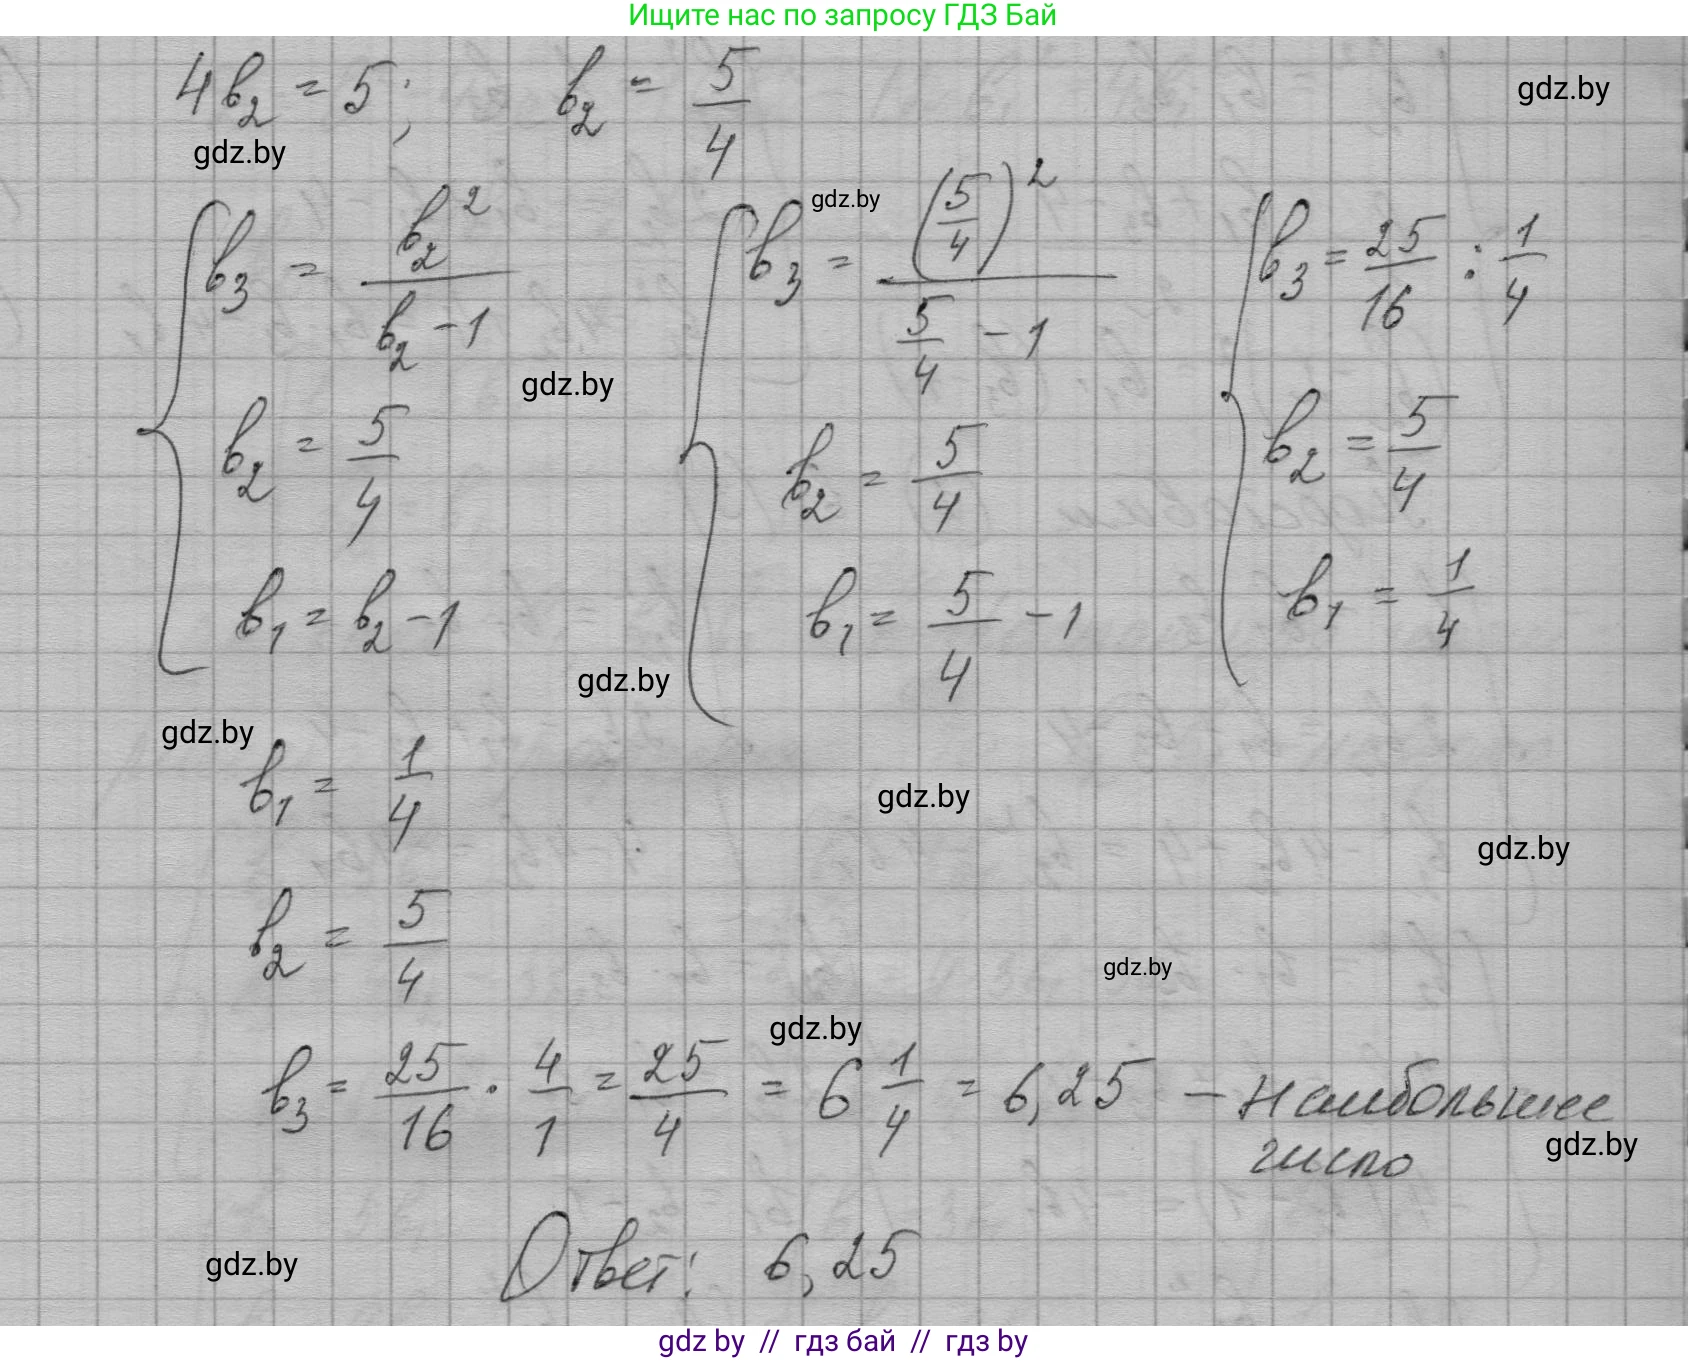 Ищите нас по запросу ГДЗ Бай
4b₂ = 5; b₂ = 5/4
gdz.by
gdz.by
gdz.by
{ b₃ = b₂²/(b₂ - 1) { b₃ = (5/4)²/(5/4 - 1) { b₃ = 25/16 : 1/4
gdz.by
b₂ = 5/4 b₂ = 5/4 b₂ = 5/4
b₁ = b₂ - 1 b₁ = 5/4 - 1 b₁ = 1/4
gdz.by
gdz.by
b₁ = 1/4
gdz.by
gdz.by
b₂ = 5/4
gdz.by
gdz.by
b₃ = 25/16 · 4/1 = 25/4 = 6 1/4 = 6,25 – наибольшее
число
gdz.by
Ответ: 6,25
gdz.by
gdz by // гдз бай // гдз by